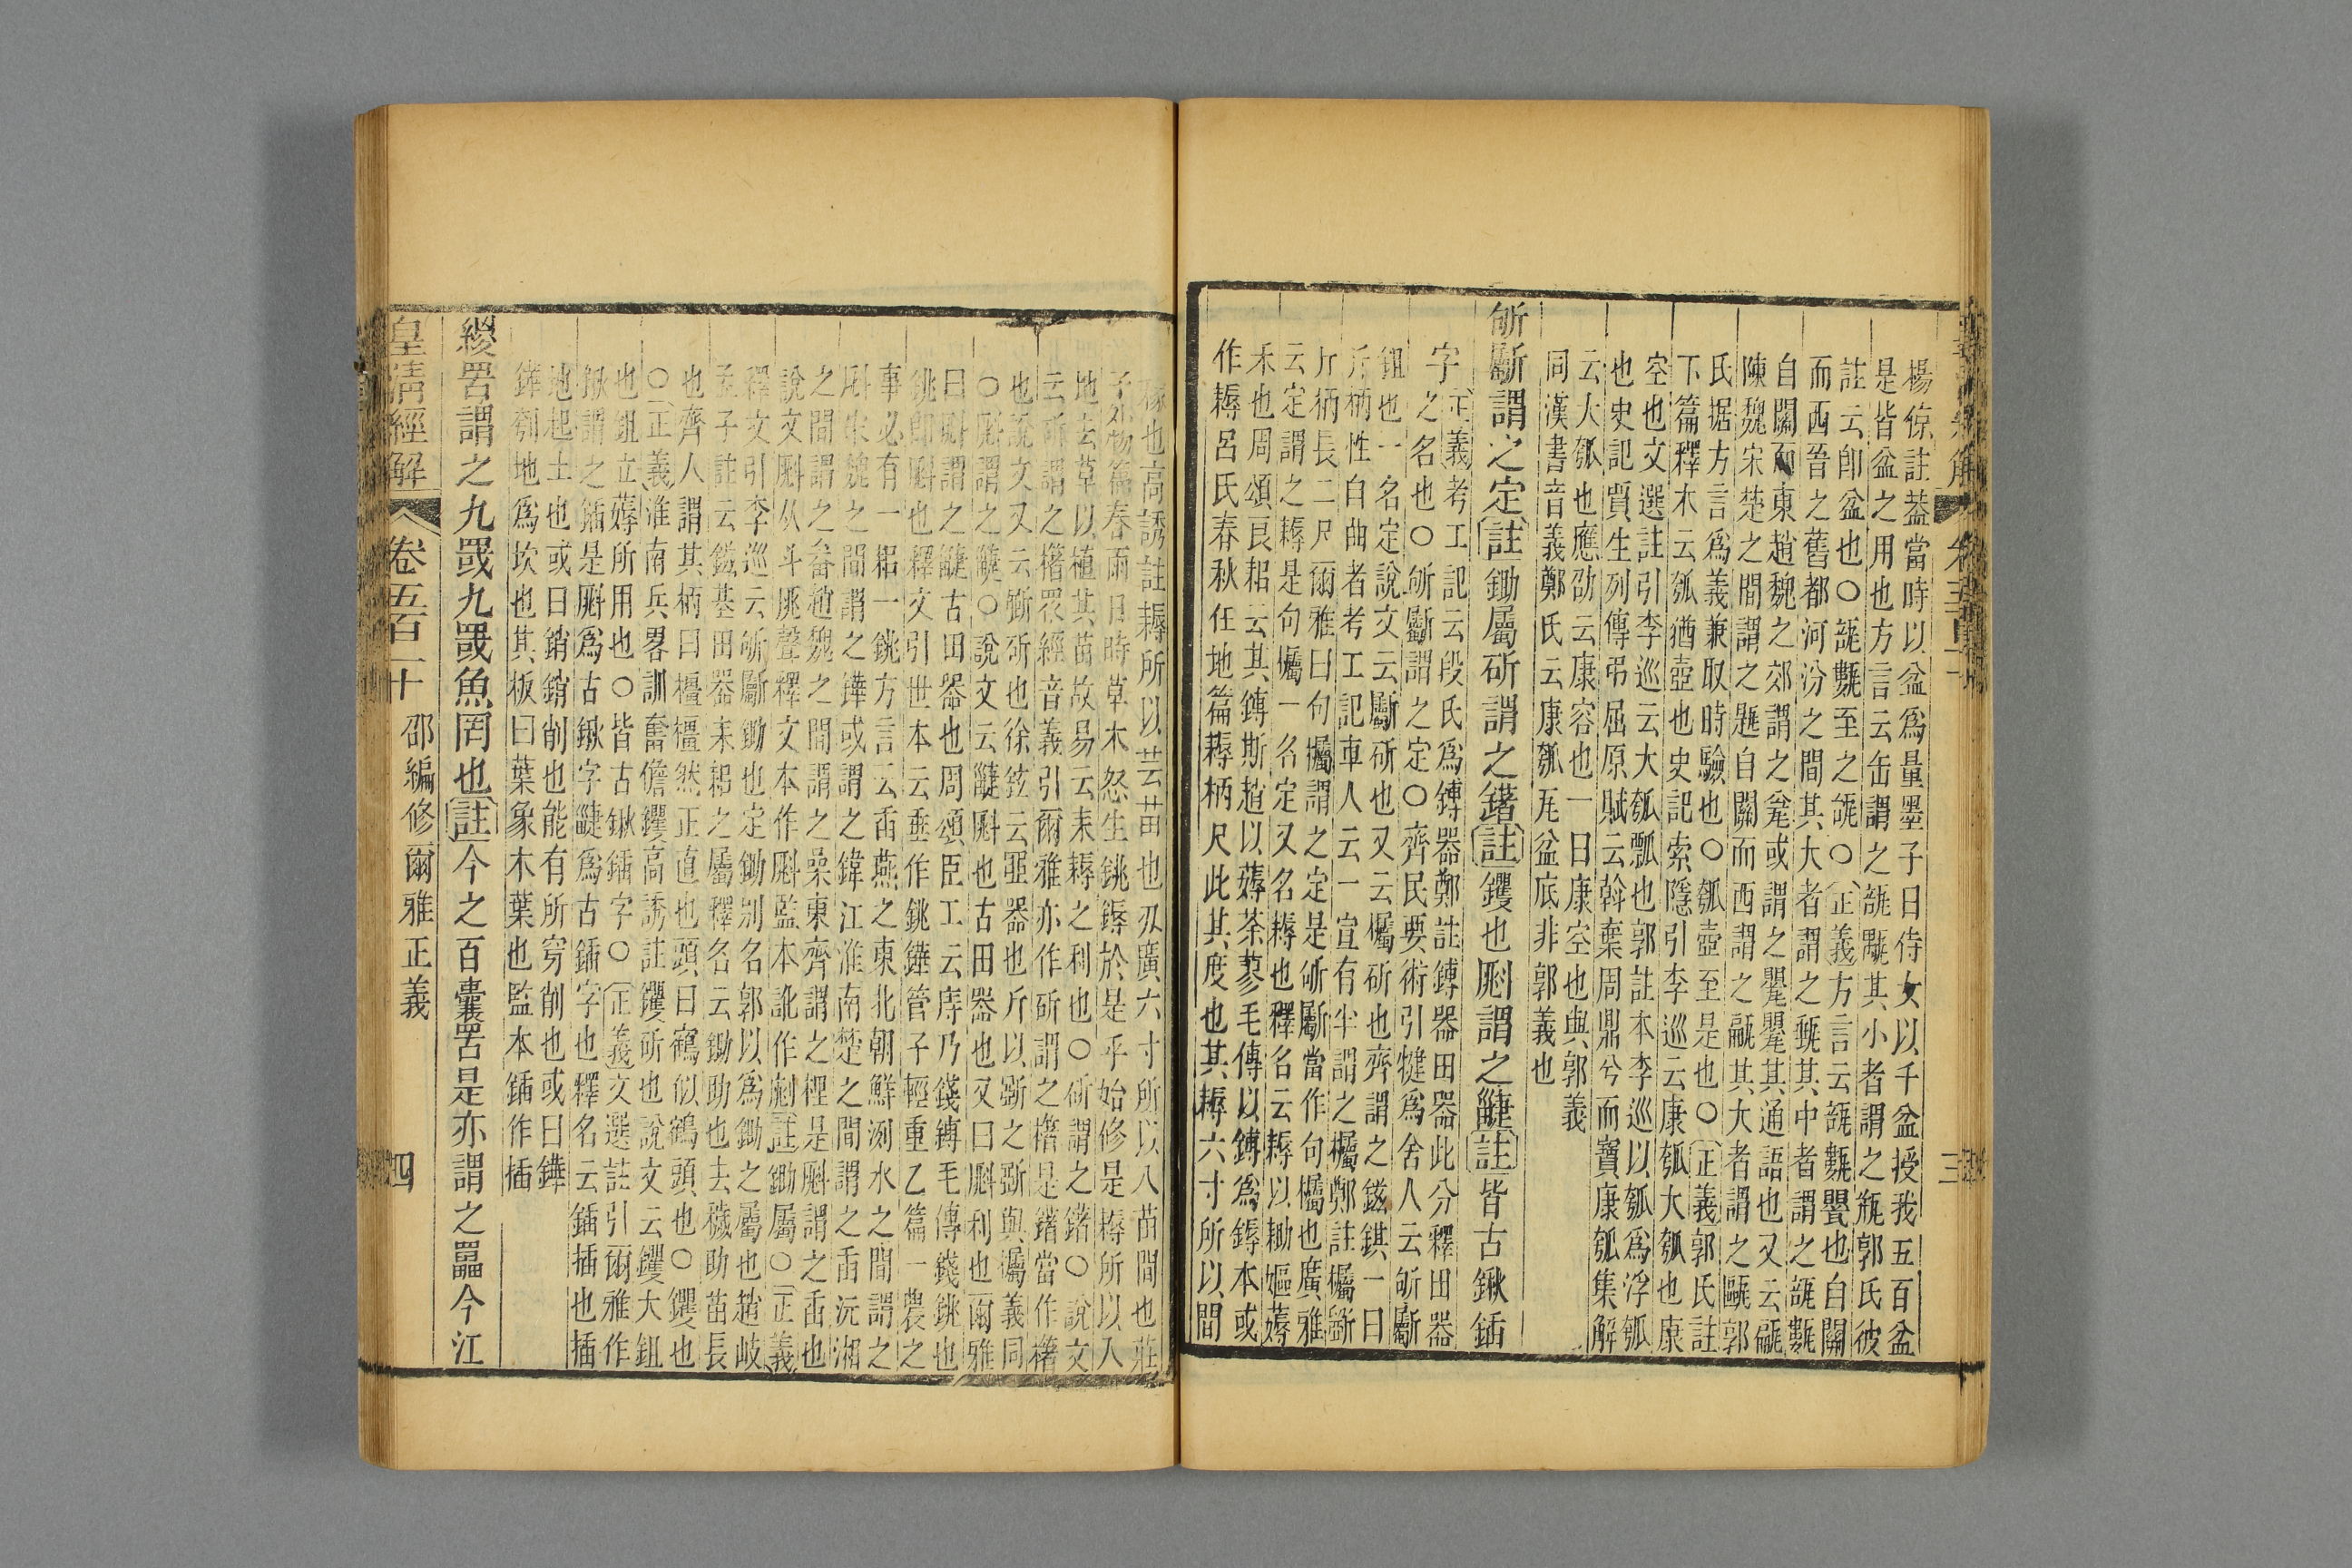 楊倞註葢當時以盆爲量墨子曰侍女以千盆授我五百盆
是皆盆之用也方言云缶謂之瓿㼶其小者謂之瓶郭氏彼
註云卽盆也○瓿甊至之瓵○正義方言云瓿甊甖也自關
而西晉之舊都河汾之間其大者謂之甀其中者謂之瓿甊
自關而東趙魏之郊謂之瓮或謂之甖甖其通語也又云甂
陳魏宋楚之間謂之㼵自關而西謂之甂其大者謂之甌郭
氏据方言爲義兼取時驗也○瓠壺至是也○正義郭氏註
下篇釋木云瓠猶壺也史記索隱引李巡云康瓠大瓠也康
空也文選註引李巡云大瓠瓢也郭註本李巡以瓠爲浮瓠
也史記賈生列傳弔屈原賦云斡棄周鼎兮而寶康瓠集解
云大瓠也應劭云康容也一曰康空也與郭義
同漢書音義鄭氏云康瓠瓦盆底非郭義也
斪斸謂之定註鋤屬斫謂之鐯註钁也斛謂之疀註皆古鍬鍤
字正義考工記云段氏爲鎛器鄭註鎛器田器此分釋田器
之名也○斪斸謂之定○齊民要術引犍爲舍人云斪斸
鉏也一名定說文云斸斫也又云欘斫也齊謂之鎡錤一曰
斤柄性自曲者考工記車人云一宣有半謂之欘鄭註欘斲
斤柄長二尺爾雅曰句欘謂之定是斪斸當作句欘也廣雅
云定謂之耨是句欘一名定又名耨也釋名云耨以鋤嫗薅
禾也周頌良耜云其鎛斯趙以薅荼蓼毛傳以鎛爲鎒本或
作耨呂氏春秋任地篇耨柄尺此其度也其耨六寸所以間
稼也高誘註耨所以芸苗也刃廣六寸所以入苗間也莊
子外物篇春雨日時草木怒生銚鎒於是乎始修是耨所以人
地去草以植其苗故易云耒耨之利也○斫謂之鐯○說文
云斫謂之櫡衆經音義引爾雅亦作斫謂之櫡是鐯當作櫡
也說文又云斲斫也徐鉉云䀠器也斤以斲之斲與欘義同
○斛謂之疀○說文云疀斛也古田器也又曰斛利也爾雅
曰斛謂之疀古田器也周頌臣工云庤乃錢鎛毛傳錢銚也
銚卽斛也釋文引世本云垂作銚鏵管子輕重乙篇一農之
事必有一耜一銚方言云臿燕之東北朝鮮洌水之間謂之
斛宋魏之間謂之鏵或謂之鍏江淮南楚之間謂之臿沅湘
之間謂之畚趙魏之間謂之喿東齊謂之梩是斛謂之臿也
說文斛从斗𠩓聲釋文本作斛監本訛作㓥註鋤屬○正義
釋文引李巡云斪斸鋤也定鋤別名郭以爲鋤之屬也趙岐
孟子註云鎡基田器耒耜之屬釋名云鋤助也去穢助苗長
也齊人謂其柄曰橿橿然正直也頭曰鶴似鶴頭也○钁也
○正義淮南兵畧訓奮儋钁高誘註钁斫也說文云钁大鉏
也鉏立薅所用也○皆古鍬鍤字○正義文選註引爾雅作
鍬謂之鍤是斛爲古鍬字疀爲古鍤字也釋名云鍤插也插
地起土也或曰銷銷削也能有所穿削也或曰鏵
鏵刳地爲坎也其板曰葉象木葉也監本鍤作插
緵罟謂之九罭九罭魚罔也註今之百囊罟是亦謂之䍡今江
皇淸經解 卷五百十 邵編修爾雅正義 四